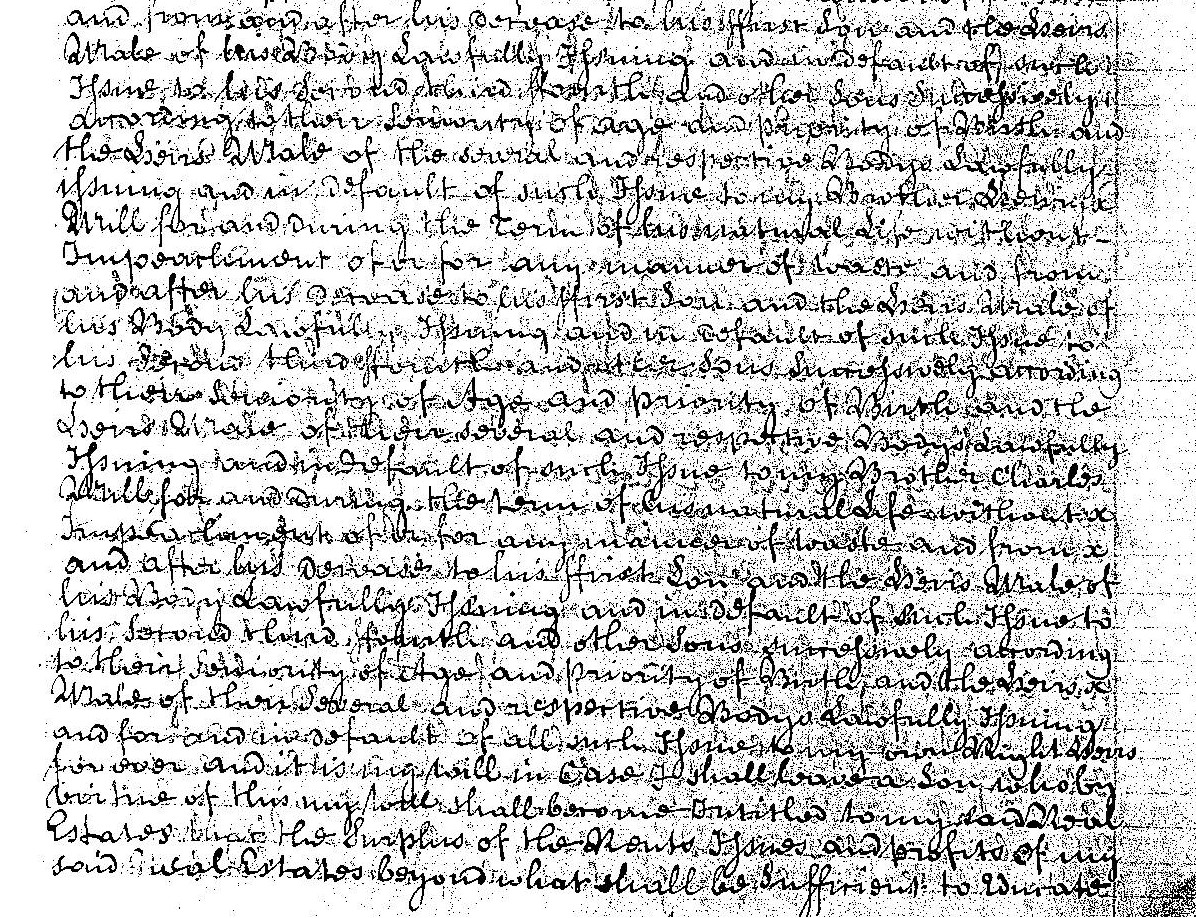 and from and after his Decease to his ffirst Son and the Heirs
Male of his Body Lawfully Issuing and in default of such
Issue to his Second third ffourth and other Sons Successively
according to their Seniority of age and Priority of Birth and
the Heirs Male of the several and respective Bodys Lawfully
issuing and in Default of such Issue to my Brother
Will for and during the Term of his natural Life without
Impeachment of or for any manner of waste and from
and after his Decease to his ffirst Son and the Heirs Male of
his Body Lawfully Issuing and in Default of such Issue to
his Second third ffourth and other Sons Successively according
to their Seniority of Age and Priority of Birth and the
Heirs Male of their several and respective Bodys Lawfully
Issuing and in default of such Issue to my Brother Charles
Will for and During the term of his natural Life without x
Impeachment of or for any manner of waste and from x
and after his Decease to his ffirst Son and the Heirs Male of
his Body Lawfully Issuing and in Default of such Issue to
his Second third fourth and other Sons successively according
to their Seniority of Age and Priority of Birth and the Heirs x
Male of their Several and respective Bodys Lawfully Issuing
and for and in default of all such Issue to my own Right Heirs
for ever and it is my will in Case I shall leave a Son who by
virtue of this my will shall become Intitled to my said Real
Estates that the Surplus of the Rents Issues and profits of my
said real Estates beyond what shall be Sufficient to Educate